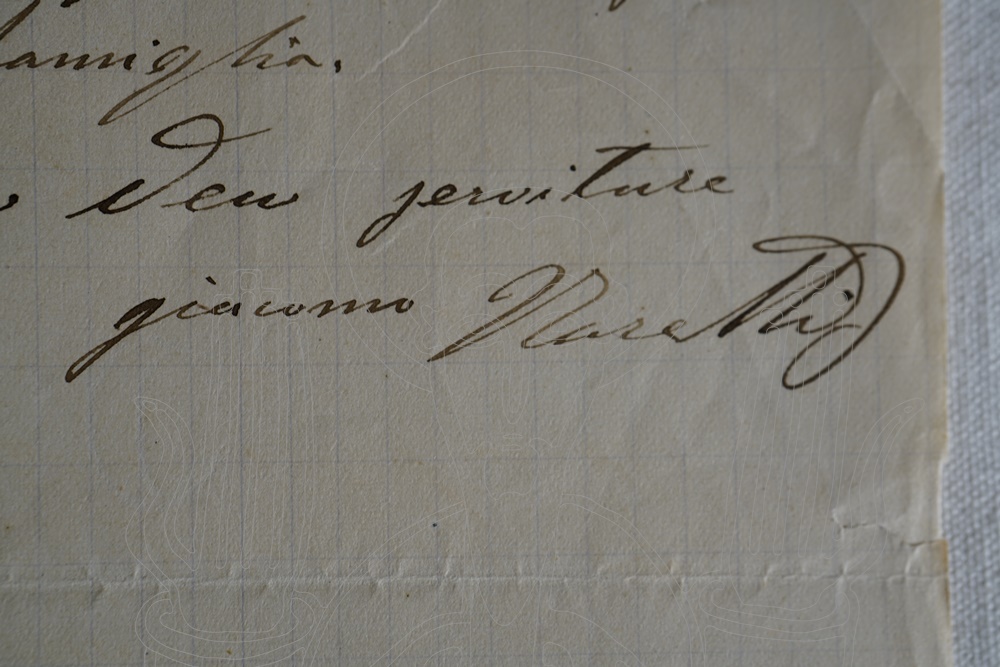 famiglia.
Dev servitore
giacomo Naretti